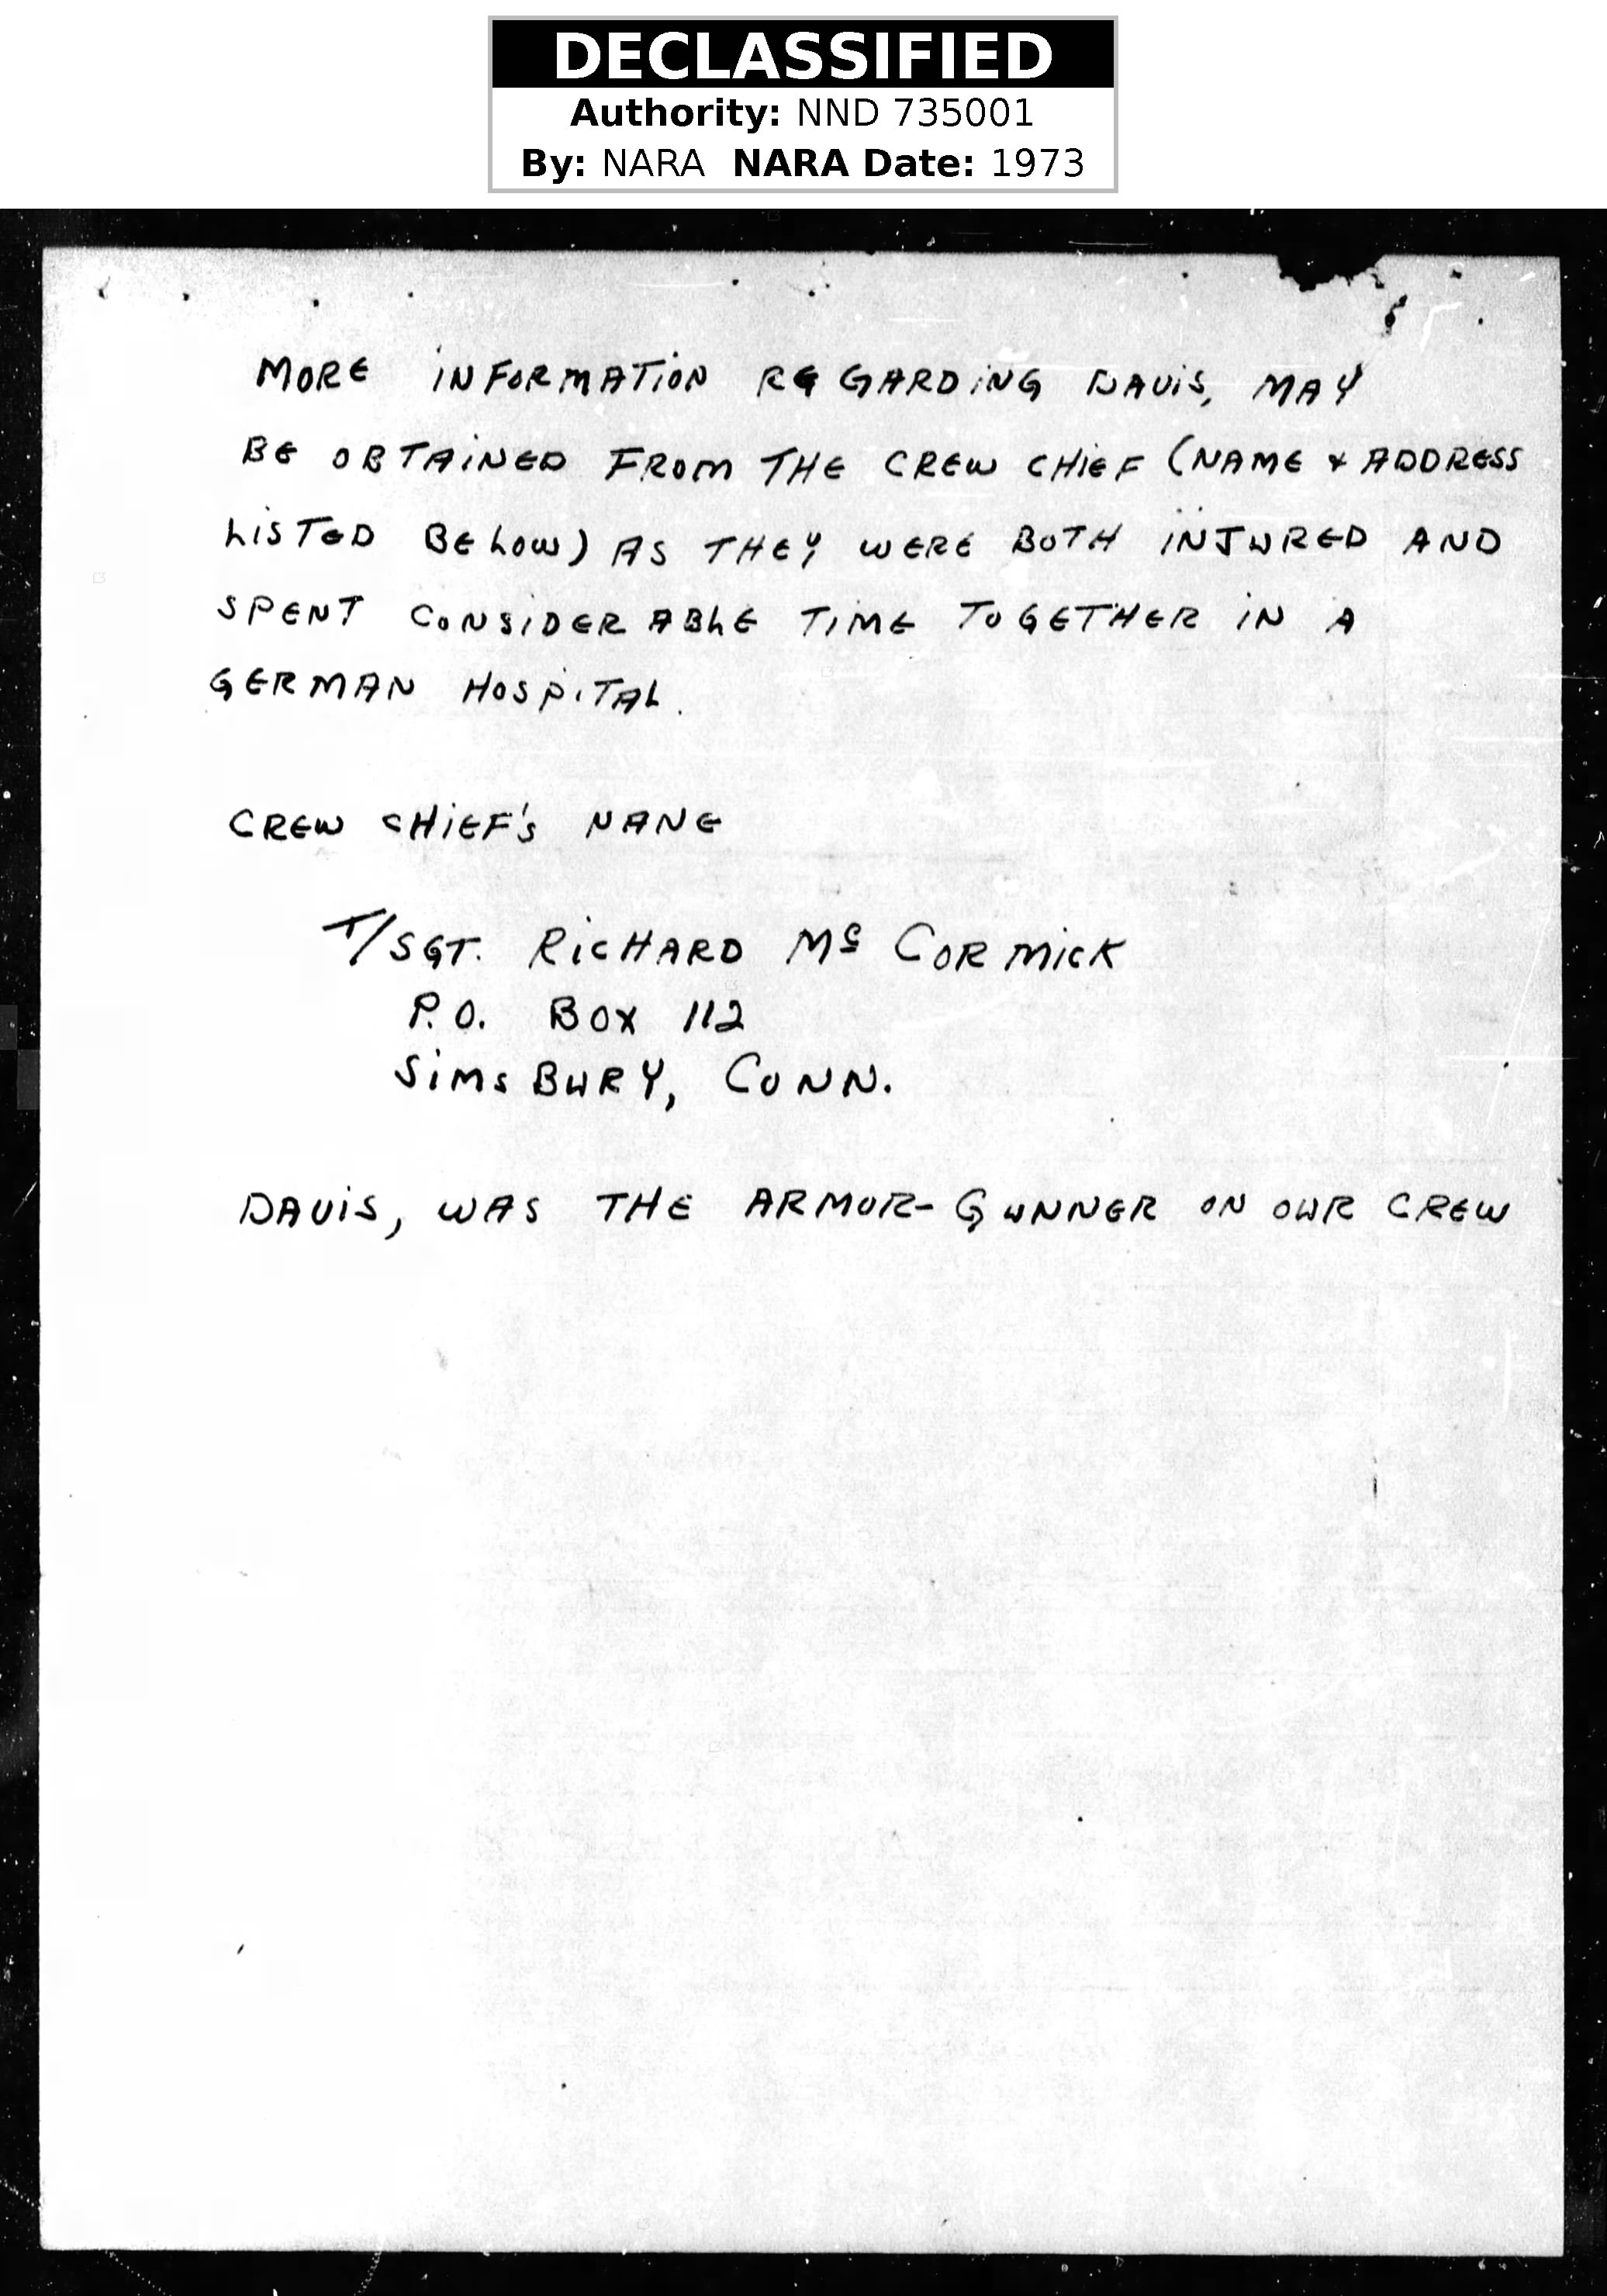 DECLASSIFIED
Authority: NND 735001
By: NARA NARA Date: 1973
MORE INFORMATION REGARDING DAVIS, MAY
BE OBTAINED FROM THE CREW CHIEF (NAME & ADDRESS
LISTED BELOW) AS THEY WERE BOTH INJURED AND
SPENT CONSIDERABLE TIME TOGETHER IN A
GERMAN HOSPITAL.
CREW CHIEF'S NANE
T/SGT. RICHARD Mc CORMICK
P.O. BOX 112
SIMSBURY, CONN.
DAVIS, WAS THE ARMOR-GUNNER ON OUR CREW